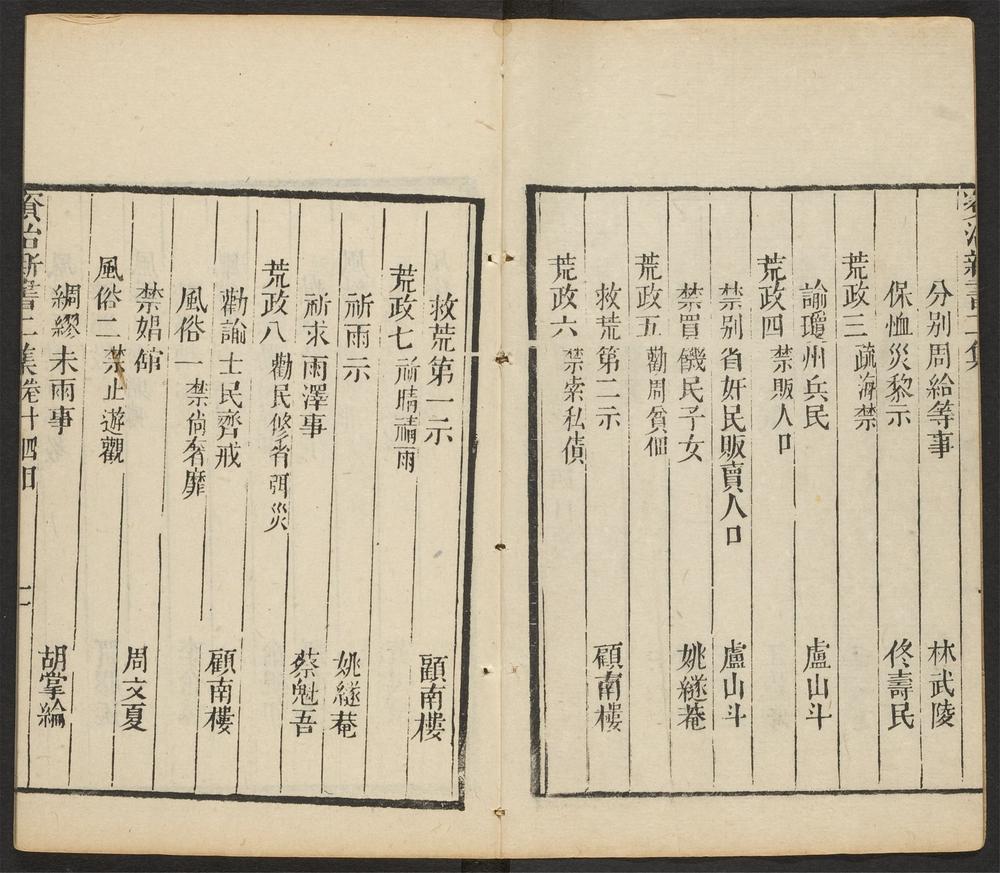 資治新書二集
分别周給等事 林武陵
保恤災黎示 佟壽民
荒政三 疏海禁
諭瓊州兵民 盧山斗
荒政四 禁販人口
禁别省奸民販賣人口 盧山斗
禁買饑民子女 姚繸菴
荒政五 勸周貧傴
救荒第二示 顧南樓
荒政六 禁索私債
救荒第一示 顧南樓
荒政七 祈晴禱雨
祈雨示 姚繸菴
祈求雨澤事 蔡魁吾
荒政八 勸民修省弭災
勸諭士民齊戒 顧南樓
風俗一 禁尚奢靡
禁娼舘 周文夏
風俗二 禁止遊觀
綢繆未雨事 胡掌綸
資治新書二集卷十四目 二